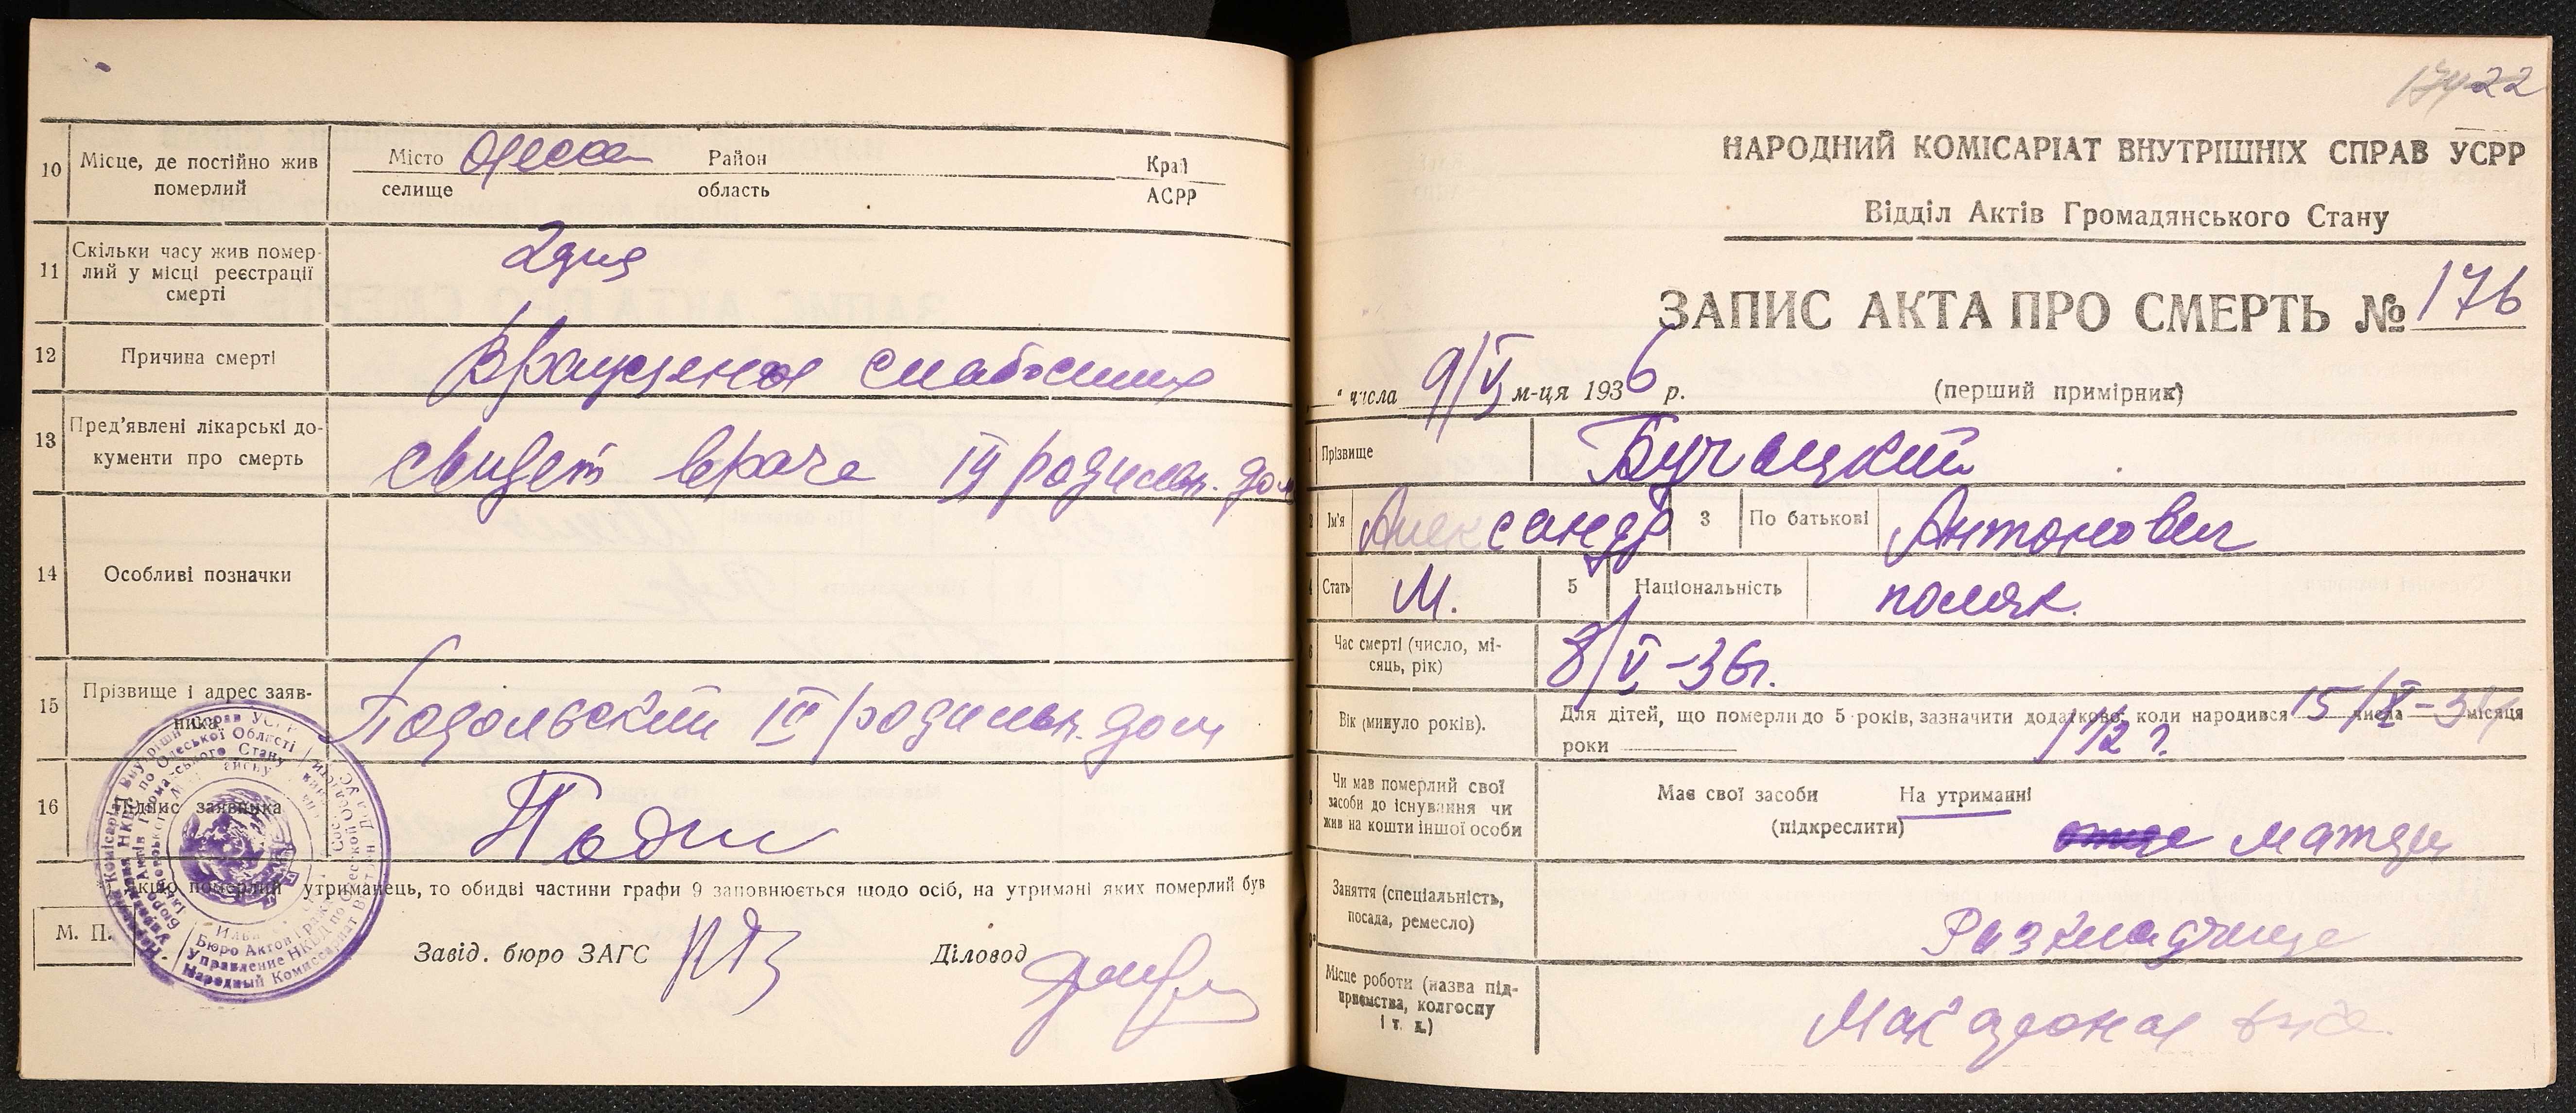 10 Місце, де постійно жив померлий
Місто Одесса Район Край
селище область АСРР
11 Скільки часу жив помер-
лий у місці реєстрації
смерті
2 дня
12 Причина смерті
Врожденная слабость
13 Пред’явлені лікарські до-
кументи про смерть
свидет врача родильн. дом
14 Особливі позначки
15 Прізвище і адрес заяв-
ника
Подольский родильн. дом
16 Підпис заявника
Якщо померлий утриманець, то обидві частини графи 9 заповнюється щодо осіб, на утримані яких померлий був
М. П.
Завід. бюро ЗАГС
Діловод
22
НАРОДНИЙ КОМІСАРІАТ ВНУТРІШНІХ СПРАВ УСРР
Відділ Актів Громадянського Стану
ЗАПИС АКТА ПРО СМЕРТЬ № 176
" числа 9/V м-ця 1936 р. (перший примірник)
Прізвище Бучацкий
Ім'я Александр 3 По батькові Антонович
Стать М. 5 Національність поляк.
Час смерті (число, мі-
сяць, рік)
8/V-36г.
Вік (минуло років).
Для дітей, що померли до 5 років, зазначити додатково, коли народився 15 числа місяця
роки 1 1/2 г.
Чи мав померлий свої
засоби до існування чи
жив на кошти іншої особи
Має свої засоби На утриманні
(підкреслити)
матери
Заняття (спеціальність,
посада, ремесло)
Місце роботи (назва під-
приємства, колгоспу
і т. к.)